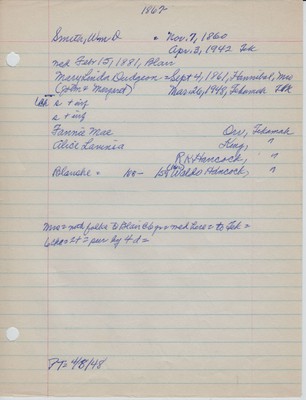 1867
Smith, Wm D = Nov. 7, 1860
Apr. 3, 1942 Tek
med Feb 15, 1881, Blair
Mary Linda Dudgeon = Sept 4, 1861, Hannibal, Mo
(John & Margaret) Mar. 26, 1948, Tekamah Tek
s + inf
s + inf
Fannie Mae Orr, Tekamah
Alice Lavinia King, "
R N Hancock, "
Blanche = Waldo Hancock, "
Mrs = with folks to Blair @ 6 yr = med here = to Tek =
6 chn = 2 + 2 sur by 4 d =
JT = 4/8/48